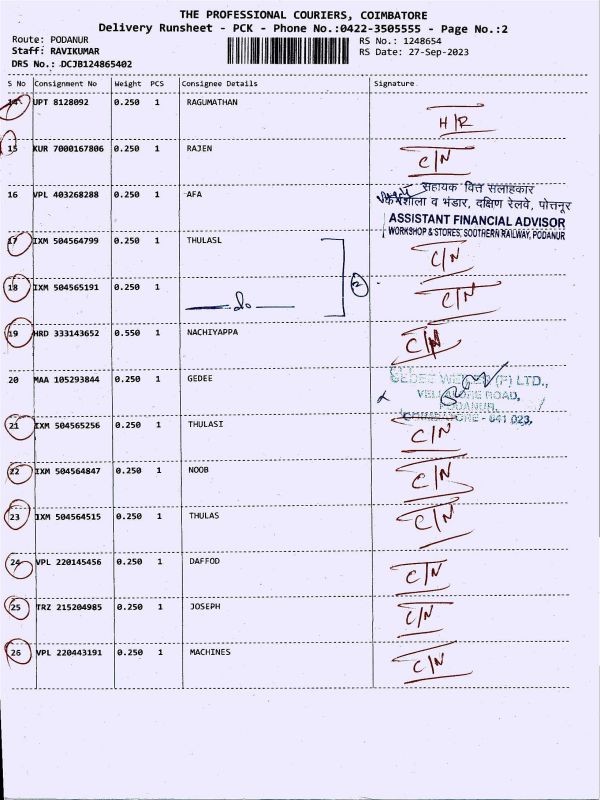 THE PROFESSIONAL COURIERS, COIMBATORE
Delivery Runsheet - PCK - Phone No.:0422-3505555 - Page No.:2
Route: PODANUR
RS No.: 1248654
Staff: RAVIKUMAR
RS Date: 27-Sep-2023
DRS No.: DCJB124865402
S No Consignment No Weight PCS Consignee Details Signature
14 UPT 8128092 0.250 1 RAGUMATHAN
H/R
15 KUR 7000167806 0.250 1 RAJEN C/N
16 VPL 403268288 0.250 1 AFA
सहायक वित्त सलाहकार
कर्मशाला व भंडार, दक्षिण रेलवे, पोत्तनूर
ASSISTANT FINANCIAL ADVISOR
WORKSHOP & STORES, SOUTHERN RAILWAY, PODANUR
17 IXM 504564799 0.250 1 THULASL C/N
18 IXM 504565191 0.250 1 do 2 C/N
19 HRD 333143652 0.550 1 NACHIYAPPA C/N
20 MAA 105293844 0.250 1 GEDEE
GEDEE WEILER (P) LTD.,
VELLALORE ROAD,
PODANUR,
COIMBATORE - 641 023.
21 IXM 504565256 0.250 1 THULASI C/N
22 IXM 504564847 0.250 1 NOOB C/N
23 IXM 504564515 0.250 1 THULAS C/N
24 VPL 220145456 0.250 1 DAFFOD C/N
25 TRZ 215204985 0.250 1 JOSEPH C/N
26 VPL 220443191 0.250 1 MACHINES C/N